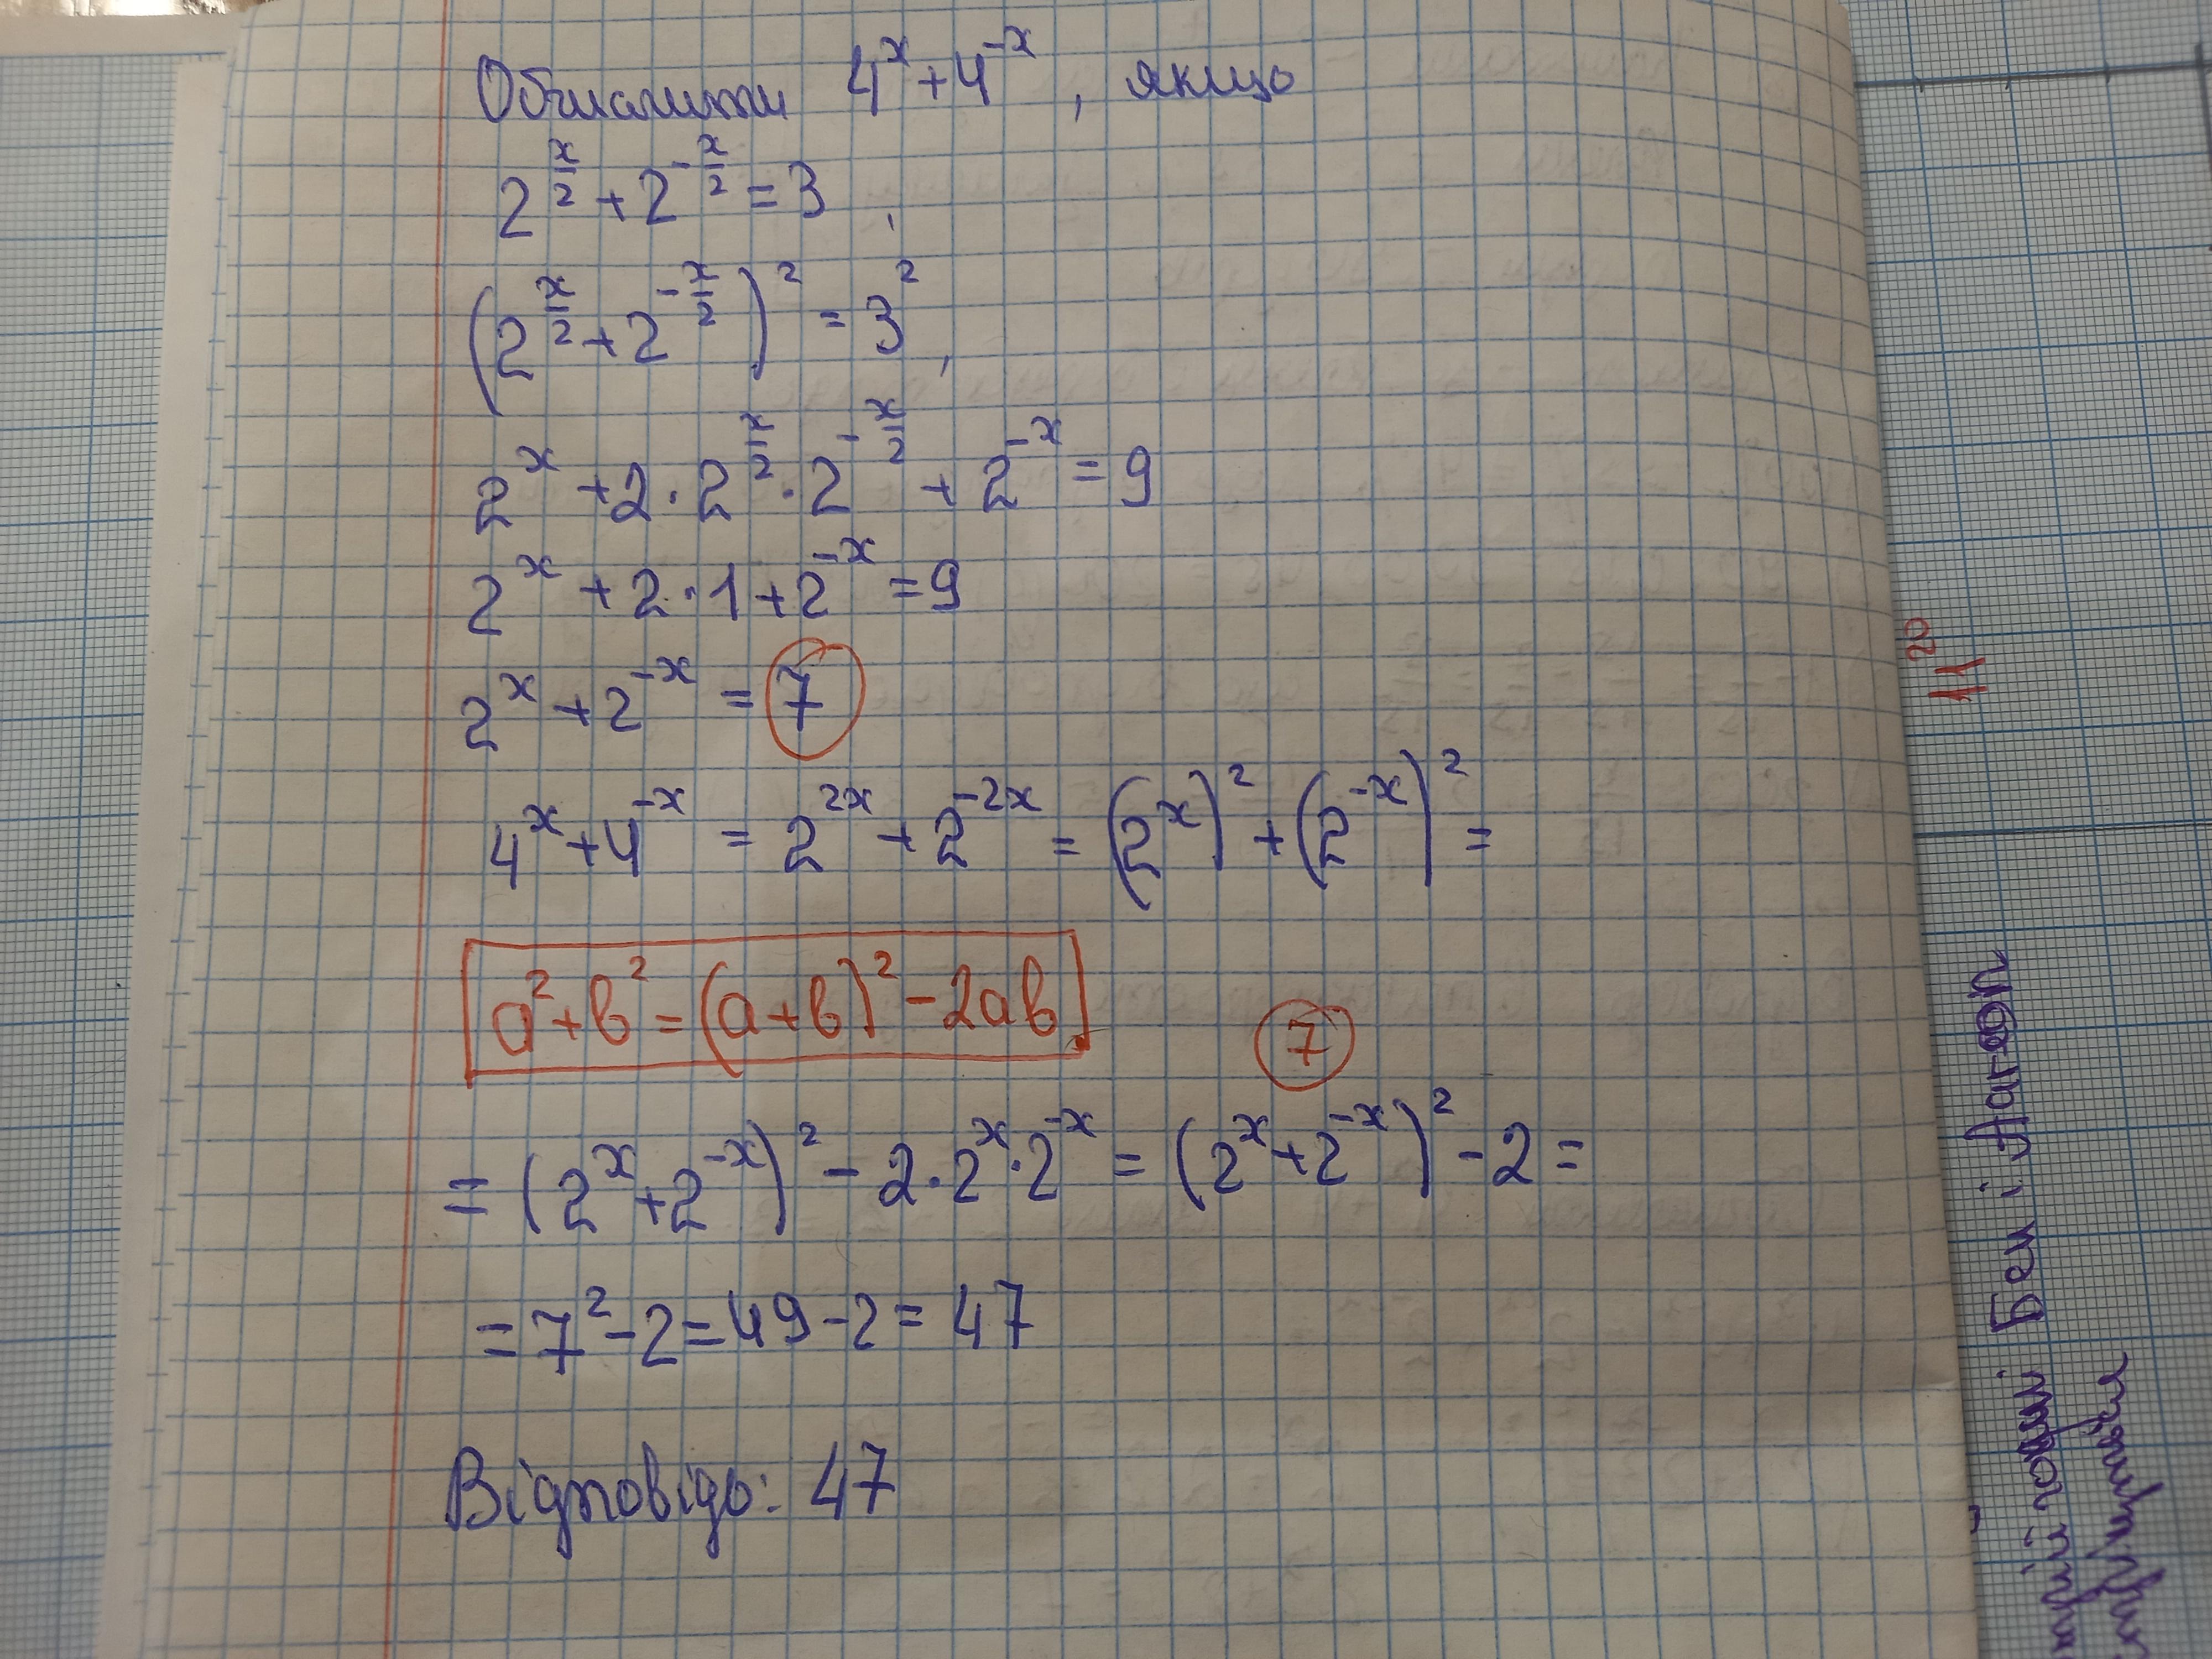 Обчислити 4^x + 4^-x , якщо
2^(x/2) + 2^(-x/2) = 3 ,
(2^(x/2) + 2^(-x/2))² = 3² ,
2^x + 2 · 2^(x/2) · 2^(-x/2) + 2^-x = 9
2^x + 2 · 1 + 2^-x = 9
2^x + 2^-x = 7
4^x + 4^-x = 2^2x + 2^-2x = (2^x)² + (2^-x)² =
a² + b² = (a + b)² - 2ab
7
= (2^x + 2^-x)² - 2 · 2^x · 2^-x = (2^x + 2^-x)² - 2 =
= 7² - 2 = 49 - 2 = 47
Відповідь: 47
11²⁰
Бен і Aaron